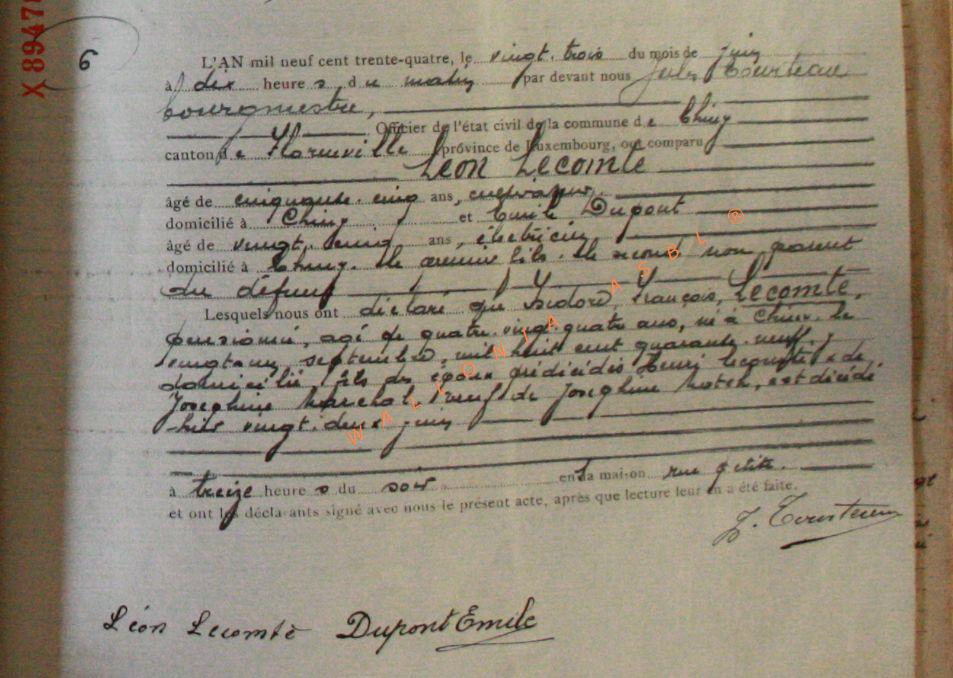 X 8947
6
L'AN mil neuf cent trente-quatre, le vingt-trois du mois de juin
à dix heure s du matin par devant nous Jules
bourgmestre,
Officier de l'état civil de la commune de Chiny
canton de Florenville province de Luxembourg, ont comparu
Léon Lecomte
âgé de cinquante cinq ans, cultivateur
domicilié à Chiny et Emile Dupont
âgé de vingt ans, électricien
domicilié à Chiny. Le premier fils. Le second non parent
du défunt
Lesquels nous ont déclaré que Isidore, François, Lecomte,
pensionné, agé de quatre-vingt-quatre ans, né à Chiny le
vingt septembre mil huit cent quarante-neuf
domicilié, fils des époux prédécédés Henri Lecomte & de
Joséphine Maréchal, veuf de Joséphine, est décédé
hier vingt-deux juin
à treize heure s du soir en la maison rue petite.
et ont les déclarants signé avec nous le présent acte, après que lecture leur en a été faite.
Léon Lecomte Dupont Emile
WALLONIA ASBL ©